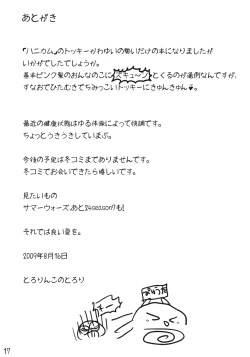 あとがき
『ハニカム』のトッキーがかわいい勢いだけの本になりましたが
いかがでしたでしょうか。
基本ピンク髪のおんなのこにズキューンとくるのが通例なんですが、
すなおでひたむきでちみっこいトッキーにきゅんきゅん♥。
最近の健康状態はゆる体操によって快調です。
ちょっとうきうきしていまふ。
今後の予定は冬コミまでありませんです。
冬コミでお会いできたら嬉しいです。
見たいもの
サマーウォーズ。あと24season7も!
それでは良い夏を。
2009年8月16日
とろりんこのとろり
17